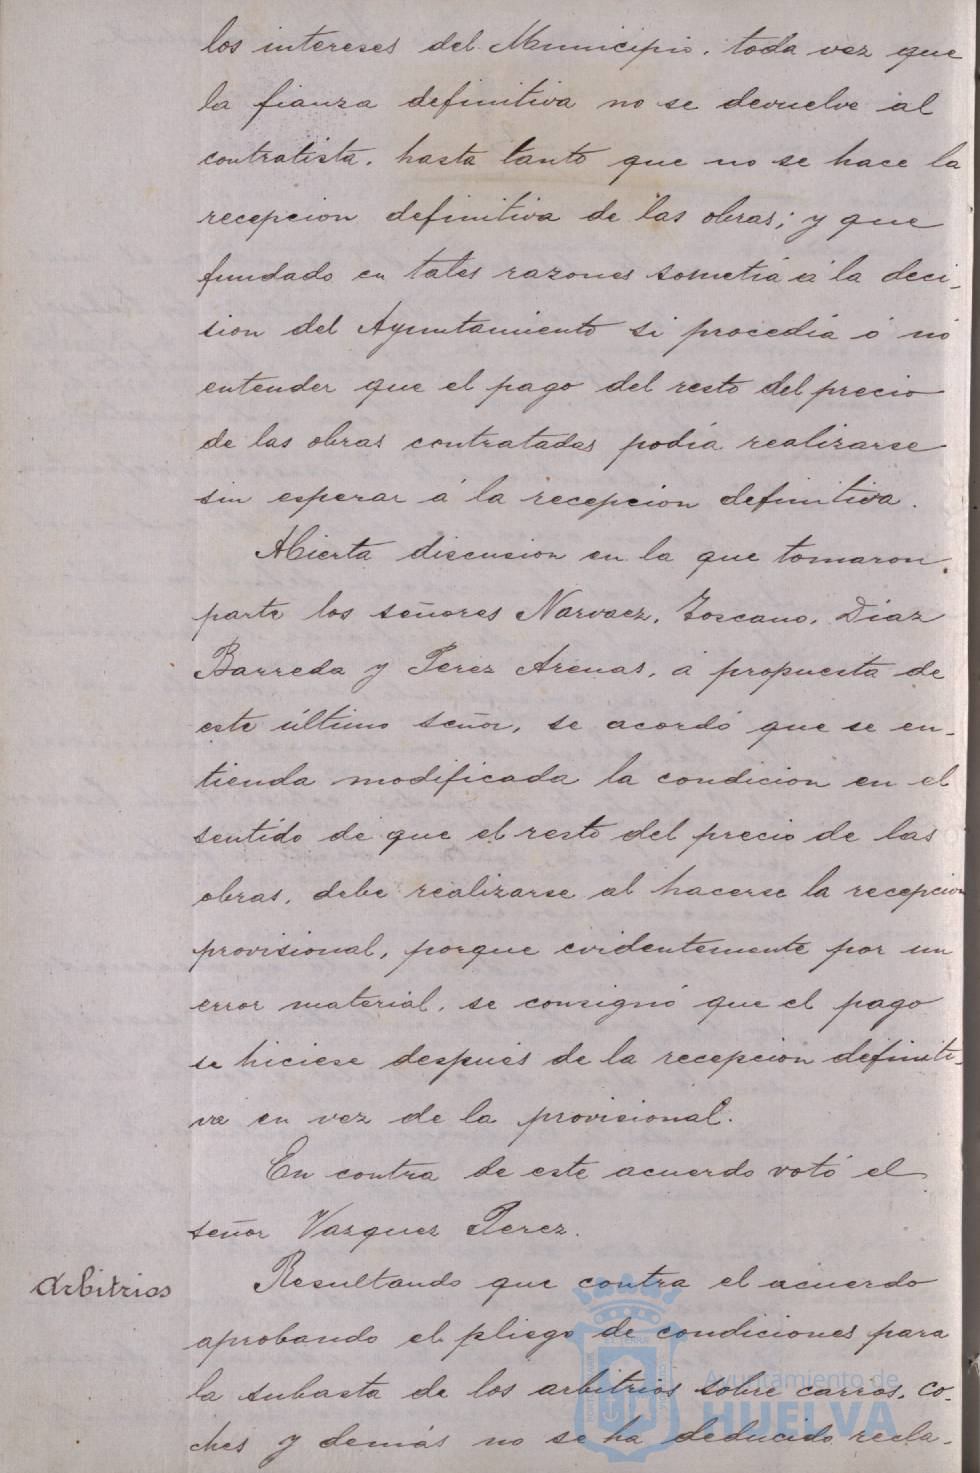 los intereses del Municipio, toda vez que
la fianza definitiva no se devuelve al
contratista, hasta tanto que no se hace la
recepcion definitiva de las obras; y que
fundado en tales razones sometia á la deci-
sion del Ayuntamiento si procedia ó nó
entender que el pago del resto del precio
de las obras contratadas podia realizarse
sin esperar á la recepcion definitiva.
Abierta discusion en la que tomaron
parte los señores Narvaez, Toscano, Diaz
Barreda y Perez Arenas, á propuesta de
este último señor, se acordó que se en-
tienda modificada la condicion en el
sentido de que el resto del precio de las
obras, debe realizarse al hacerse la recepcion
provisional, porque evidentemente por un
error material, se consignó que el pago
se hiciese después de la recepcion definiti-
va en vez de la provisional.
En contra de este acuerdo votó el
señor Vazquez Perez.
Arbitrios Resultando que contra el acuerdo
aprobando el pliego de condiciones para
la subasta de los arbitrios sobre carros, co-
ches y demás no se ha deducido recla-
Ayuntamiento de
HUELVA